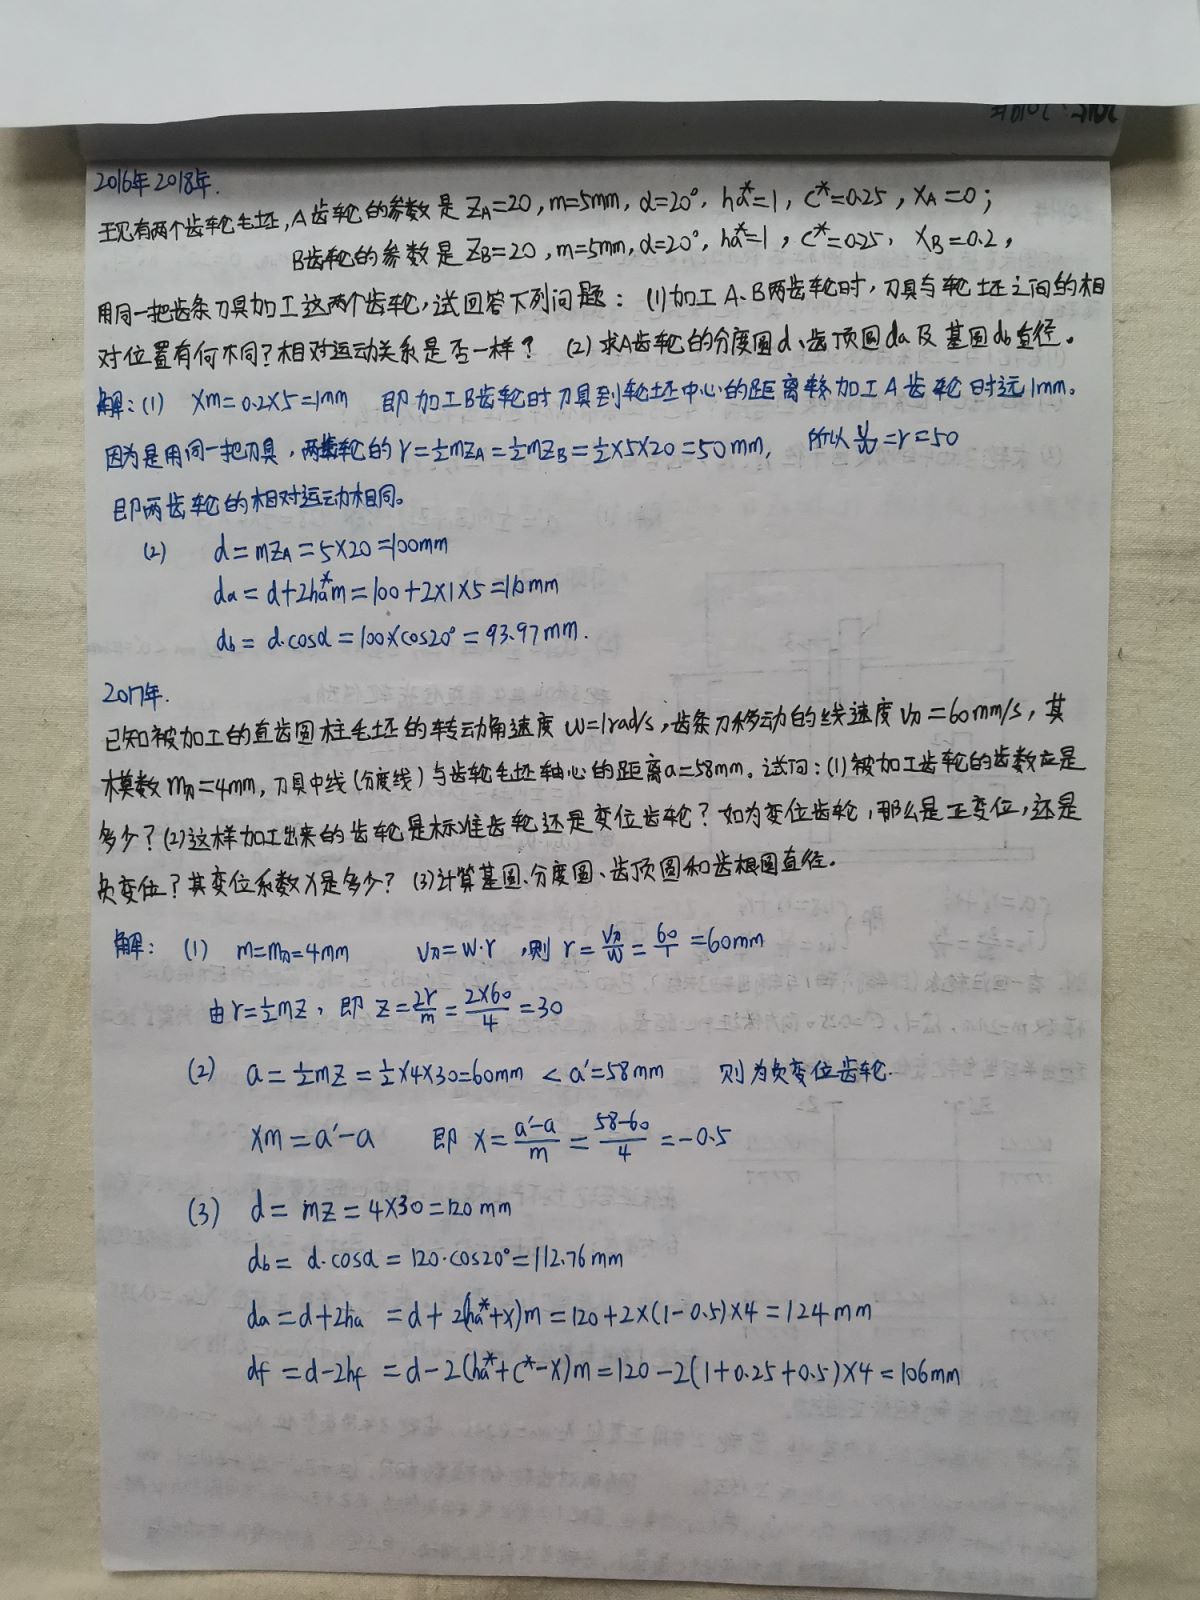 2016年2018年.
现有两个齿轮毛坯,A齿轮的参数是 ZA=20,m=5mm,α=20°, ha*=1, C*=0.25, XA=0;
B齿轮的参数是 ZB=20,m=5mm,α=20°, ha*=1, C*=0.25, XB=0.2,
用同一把齿条刀具加工这两个齿轮,试回答下列问题: (1)加工A、B两齿轮时,刀具与轮坯之间的相
对位置有何不同?相对运动关系是否一样? (2)求A齿轮的分度圆d、齿顶圆da及基圆db直径。
解:(1) Xm=0.2×5=1mm 即加工B齿轮时刀具到轮坯中心的距离较加工A齿轮时远1mm。
因为是用同一把刀具,两齿轮的r=½mZA=½mZB=½×5×20=50mm, 所以V/W=r=50
即两齿轮的相对运动相同。
(2) d=mZA=5×20=100mm
da=d+2ha*m=100+2×1×5=110mm
db=d·cosα=100×cos20°=93.97mm.
2017年.
已知被加工的直齿圆柱毛坯的转动角速度 W=1rad/s,齿条刀移动的线速度V刀=60mm/s,其
模数m刀=4mm,刀具中线(分度线)与齿轮毛坯轴心的距离a=58mm。试问:(1)被加工齿轮的齿数应是
多少?(2)这样加工出来的齿轮是标准齿轮还是变位齿轮?如为变位齿轮,那么是正变位,还是
负变位?其变位系数X是多少? (3)计算基圆、分度圆、齿顶圆和齿根圆直径。
解: (1) m=m刀=4mm V刀=W·r ,则 r=V刀/W=60/1=60mm
由r=½mZ, 即 Z=2r/m=2×60/4=30
(2) a=½mZ=½×4×30=60mm <a'=58mm 则为负变位齿轮.
Xm=a'-a 即 X=a'-a/m=58-60/4=-0.5
(3) d=mZ=4×30=120mm
db=d·cosα=120·cos20°=112.76mm
da=d+2ha=d+2(ha*+X)m=120+2×(1-0.5)×4=124mm
df=d-2hf=d-2(ha*+C*-X)m=120-2(1+0.25+0.5)×4=106mm